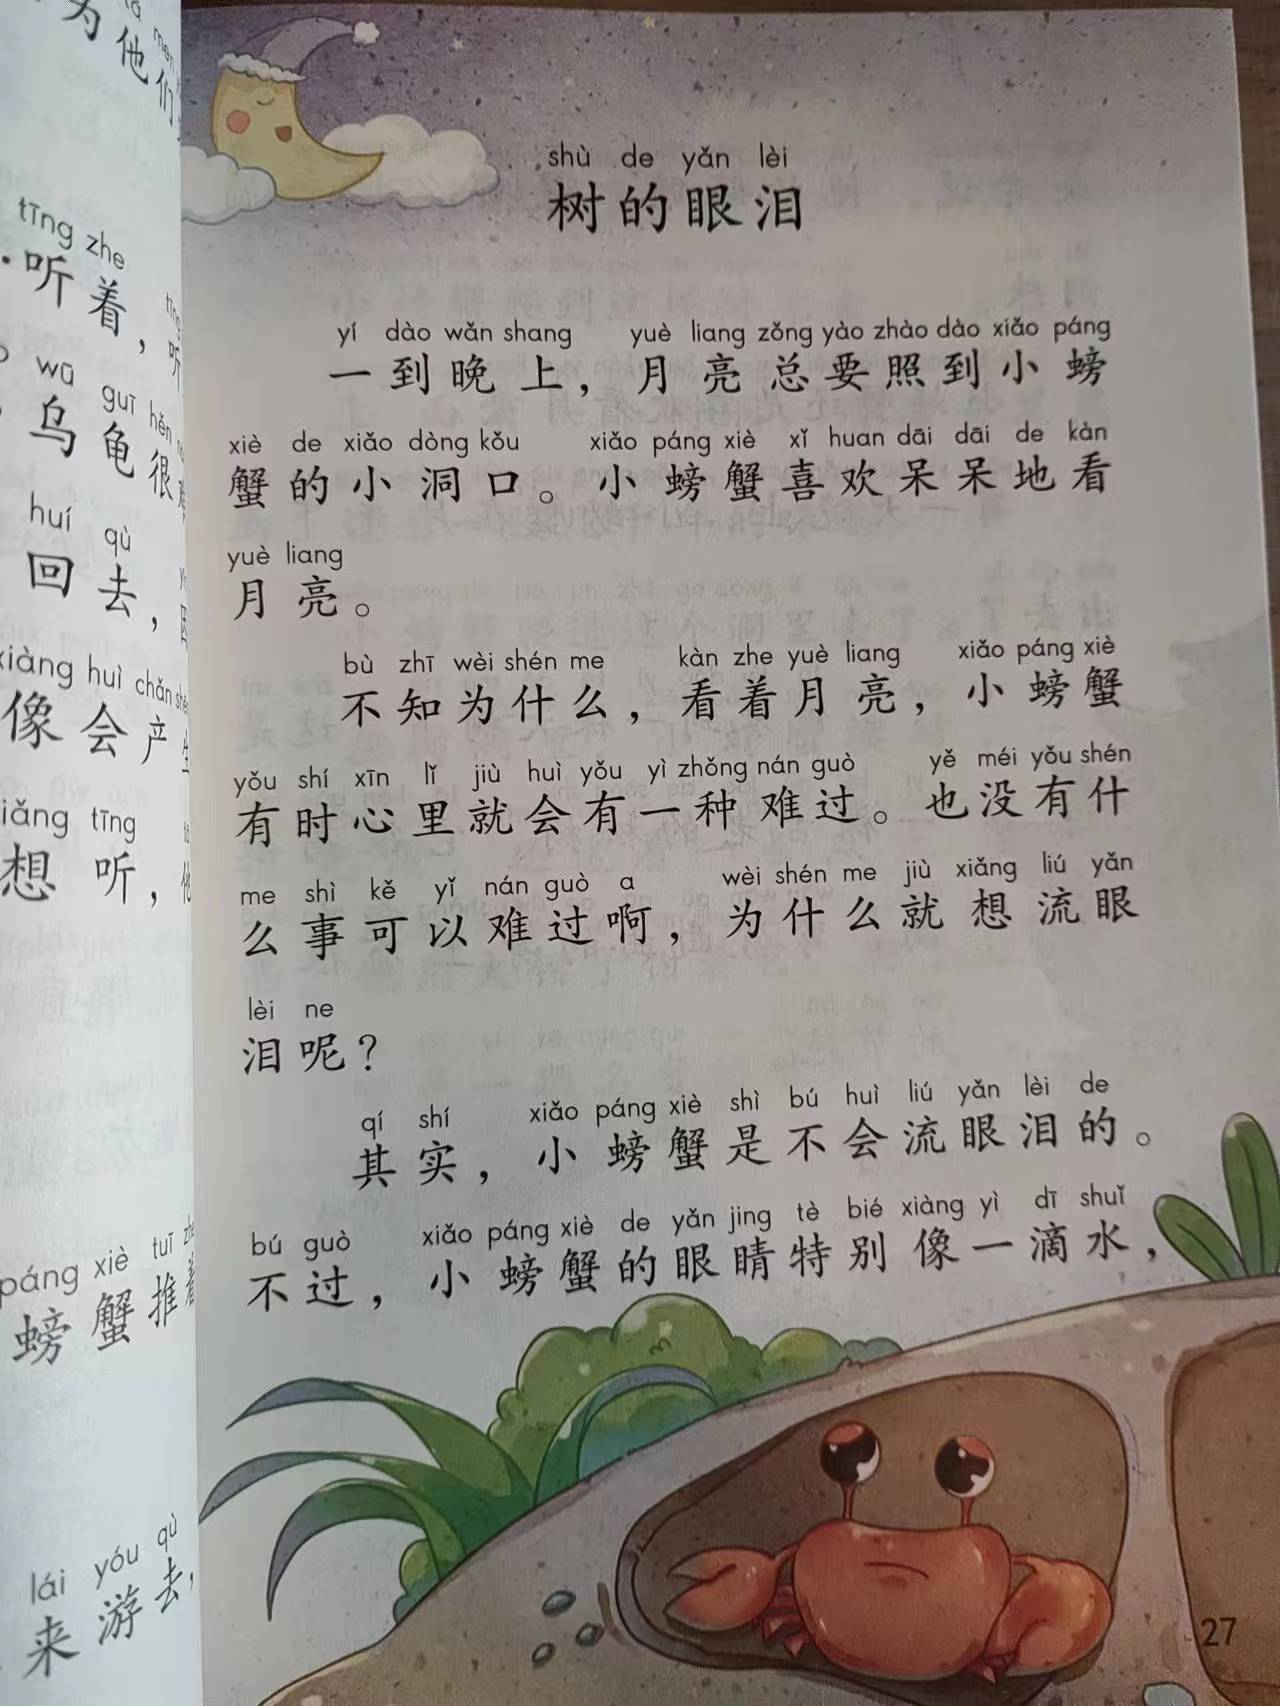 为他们
tīng zhe
听着，听
wū guī hěn
乌龟很
huí qù
回去，因
xiàng huì chǎn
像会产生
xiǎng tīng
想听，他
páng xiè tuī
螃蟹推着
lái yóu qù
来游去，
shù de yǎn lèi
树的眼泪
yí dào wǎn shang yuè liang zǒng yào zhào dào xiǎo páng
一到晚上，月亮总要照到小螃
xiè de xiǎo dòng kǒu xiǎo páng xiè xǐ huan dāi dāi de kàn
蟹的小洞口。小螃蟹喜欢呆呆地看
yuè liang
月亮。
bù zhī wèi shén me kàn zhe yuè liang xiǎo páng xiè
不知为什么，看着月亮，小螃蟹
yǒu shí xīn lǐ jiù huì yǒu yì zhǒng nán guò yě méi yǒu shén
有时心里就会有一种难过。也没有什
me shì kě yǐ nán guò a wèi shén me jiù xiǎng liú yǎn
么事可以难过啊，为什么就想流眼
lèi ne
泪呢？
qí shí xiǎo páng xiè shì bú huì liú yǎn lèi de
其实，小螃蟹是不会流眼泪的。
bú guò xiǎo páng xiè de yǎn jing tè bié xiàng yì dī shuǐ
不过，小螃蟹的眼睛特别像一滴水，
27